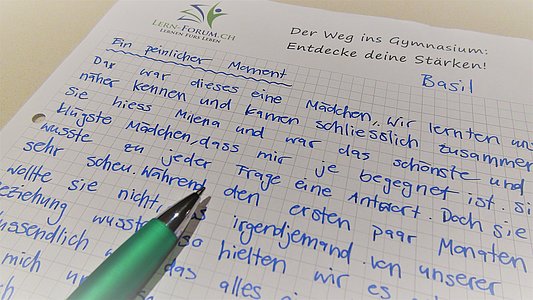 LERN-FORUM.CH
LERNEN FÜRS LEBEN
Der Weg ins Gymnasium:
Entdecke deine Stärken!
Basil
Ein peinlicher Moment
Das war dieses eine Mädchen, wir lernten uns
näher kennen und kamen schliesslich zusammen
sie hiess Milena und war das schönste und
klügste Mädchen, dass mir je begegnet ist. Sie
wusste zu jeder Frage eine Antwort. Doch sie
sehr scheu. Während den ersten paar Monaten
wollte sie nicht, irgendjemand von unserer
eziehung wusste so hielten wir es
lussendlich das alles
mich